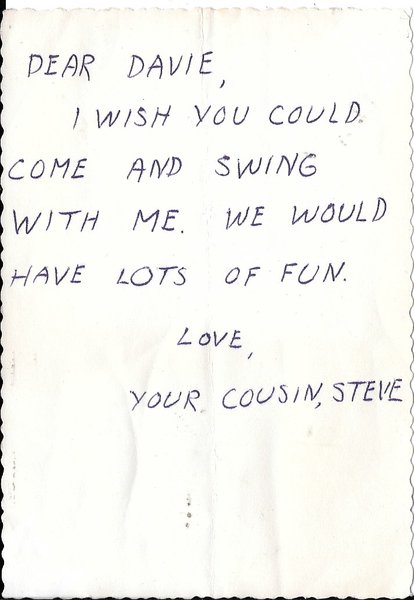 DEAR DAVIE,
I WISH YOU COULD
COME AND SWING
WITH ME. WE WOULD
HAVE LOTS OF FUN.
LOVE,
YOUR COUSIN, STEVE